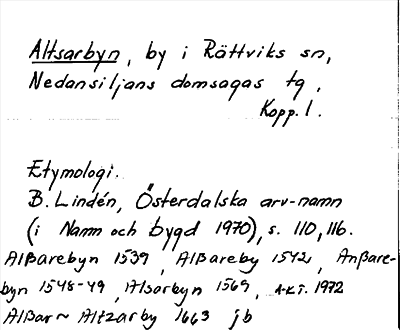 Altsarbyn, by i Rättviks sn,
Nedansiljans domsagas tg,
Kopp. l.
Etymologi.
B. Lindén, Österdalska arv-namn
(i Namn och bygd 1970), s. 110, 116.
Alßarebyn 1539, Alßareby 1542, Anßare-
byn 1548-49, Alsarbyn 1569, A-K.T. 1972
Alßar~ Altzarby 1663 jb